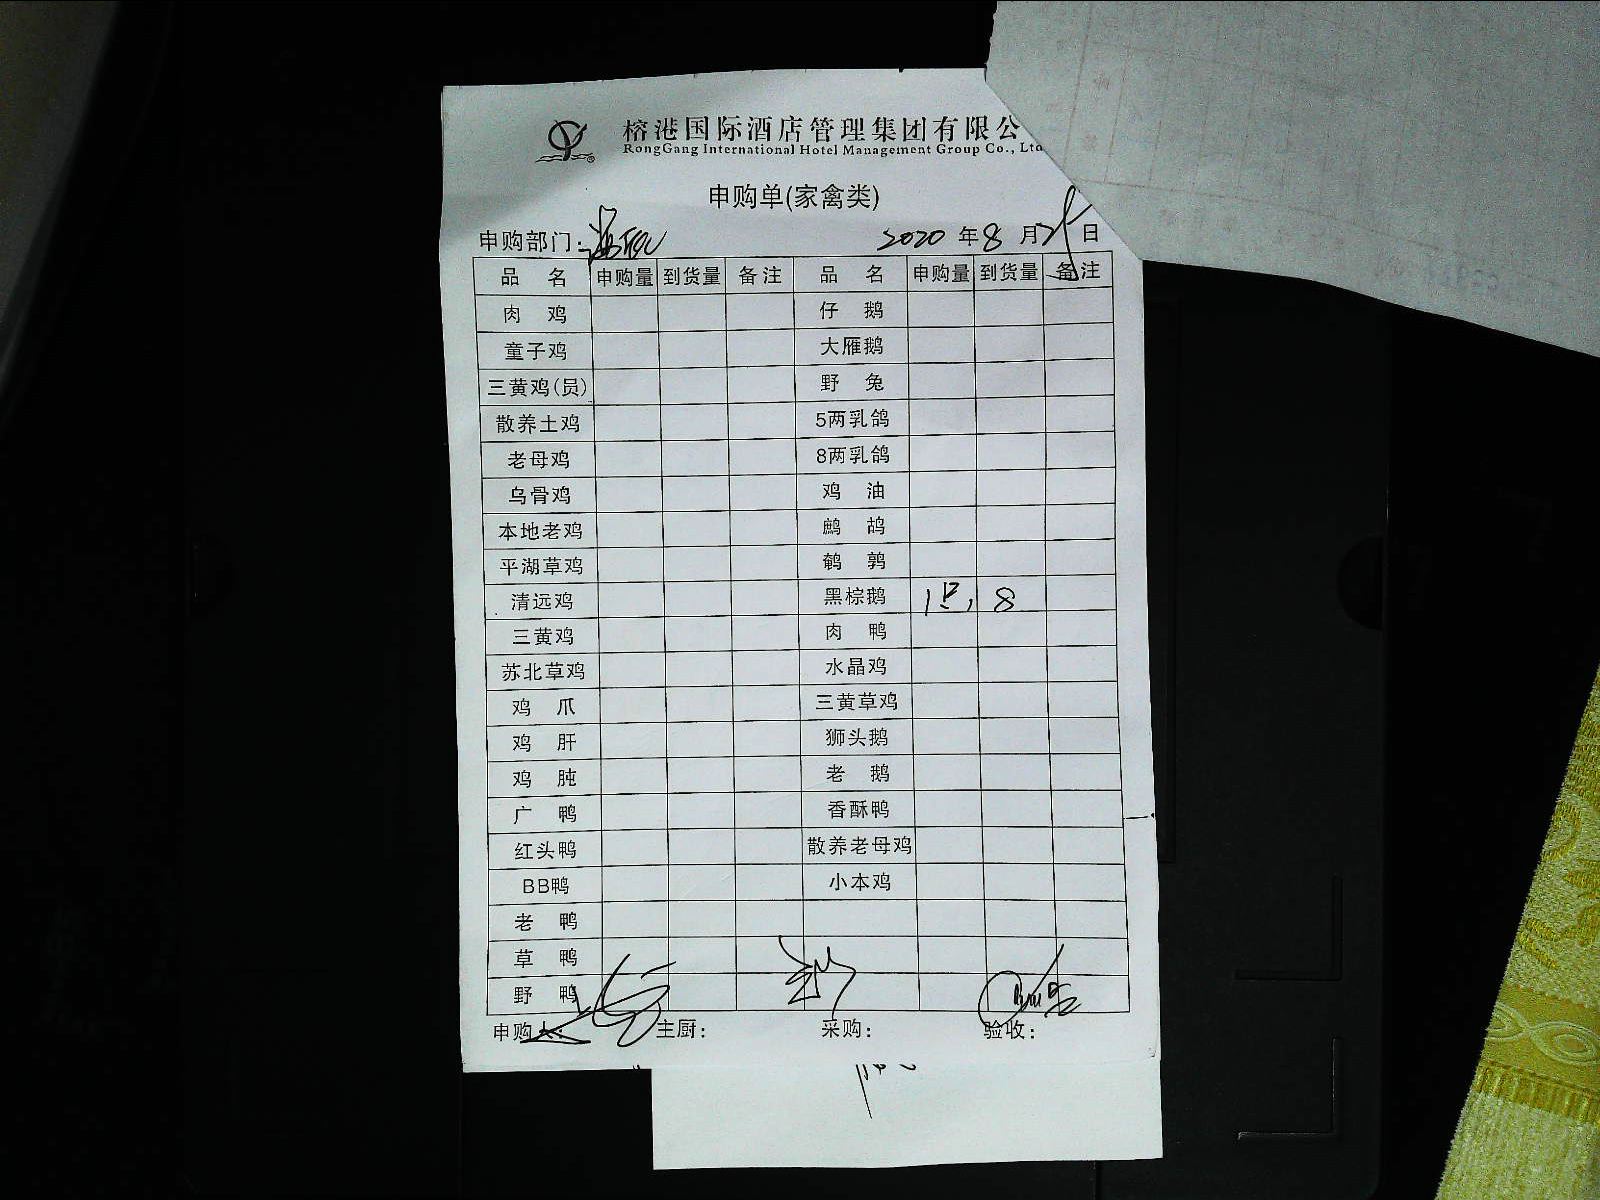 榕港国际酒店管理集团有限公
RongGang International Hotel Management Group Co., Ltd
申购单(家禽类)
申购部门: 2020 年 8 月 日
品 名 申购量 到货量 备注 品 名 申购量 到货量 备注
肉 鸡 仔 鹅
童子鸡 大雁鹅
三黄鸡(员) 野 兔
散养土鸡 5两乳鸽
老母鸡 8两乳鸽
乌骨鸡 鸡 油
本地老鸡 鹧 鸪
平湖草鸡 鹌 鹑
清远鸡 黑棕鹅 1只 8
三黄鸡 肉 鸭
苏北草鸡 水晶鸡
鸡 爪 三黄草鸡
鸡 肝 狮头鹅
鸡 肫 老 鹅
广 鸭 香酥鸭
红头鸭 散养老母鸡
BB鸭 小本鸡
老 鸭
草 鸭
野 鸭
申购人: 主厨: 采购: 验收: